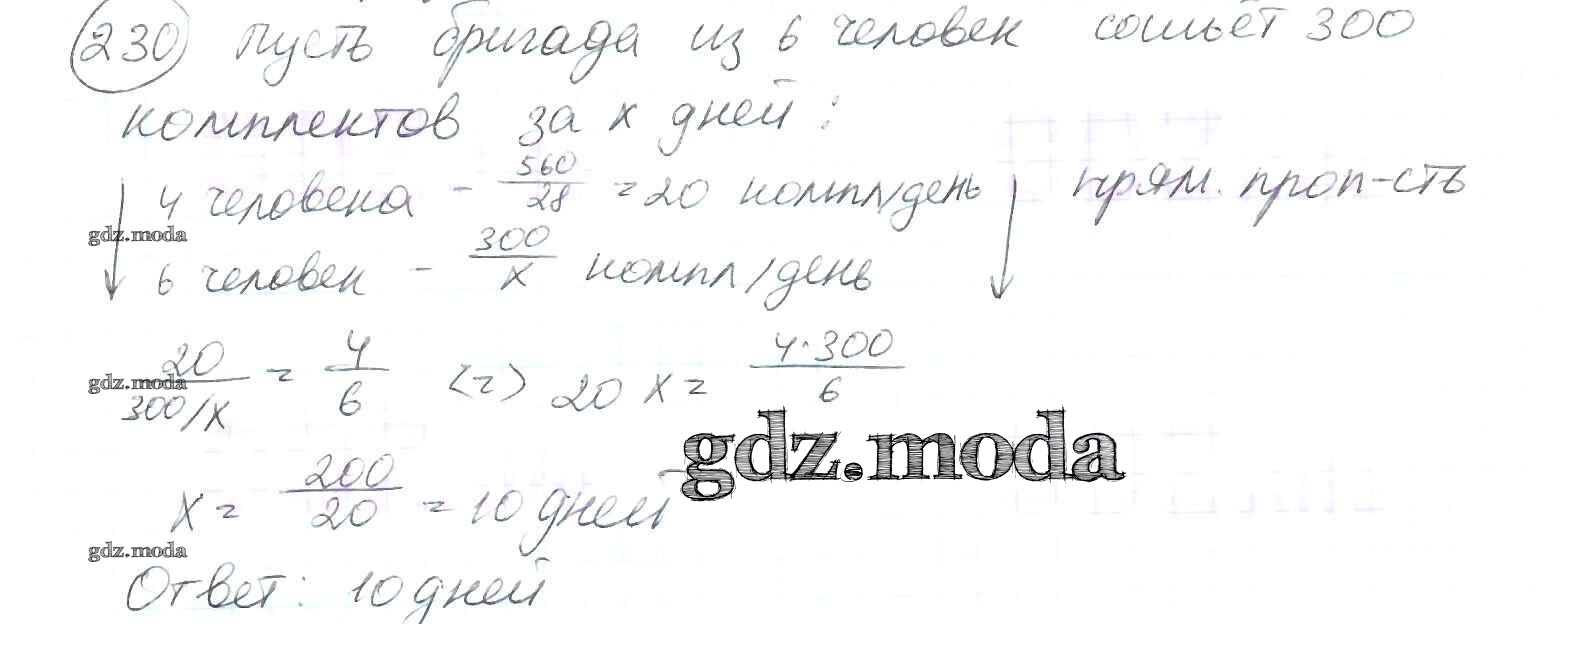 230 Пусть бригада из 6 человек сошьёт 300
комплектов за x дней:
4 человека - 560/28 = 20 компл/день прям. проп-сть
gdz.moda
6 человек - 300/x компл/день
20/(300/x) = 4/6 <=> 20x = 4·300/6
gdz.moda
gdz.moda
x = 200/20 = 10 дней
gdz.moda
Ответ: 10 дней